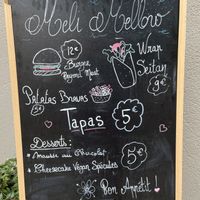 Meli Mellow
12€ Wrap
Burger Seitan
Beyond Meat 9€
Patatas Bravas
Tapas 5€
Desserts :
Mousse au Chocolat 5€
Cheesecake Vegan Spéculos
Bon Appétit !